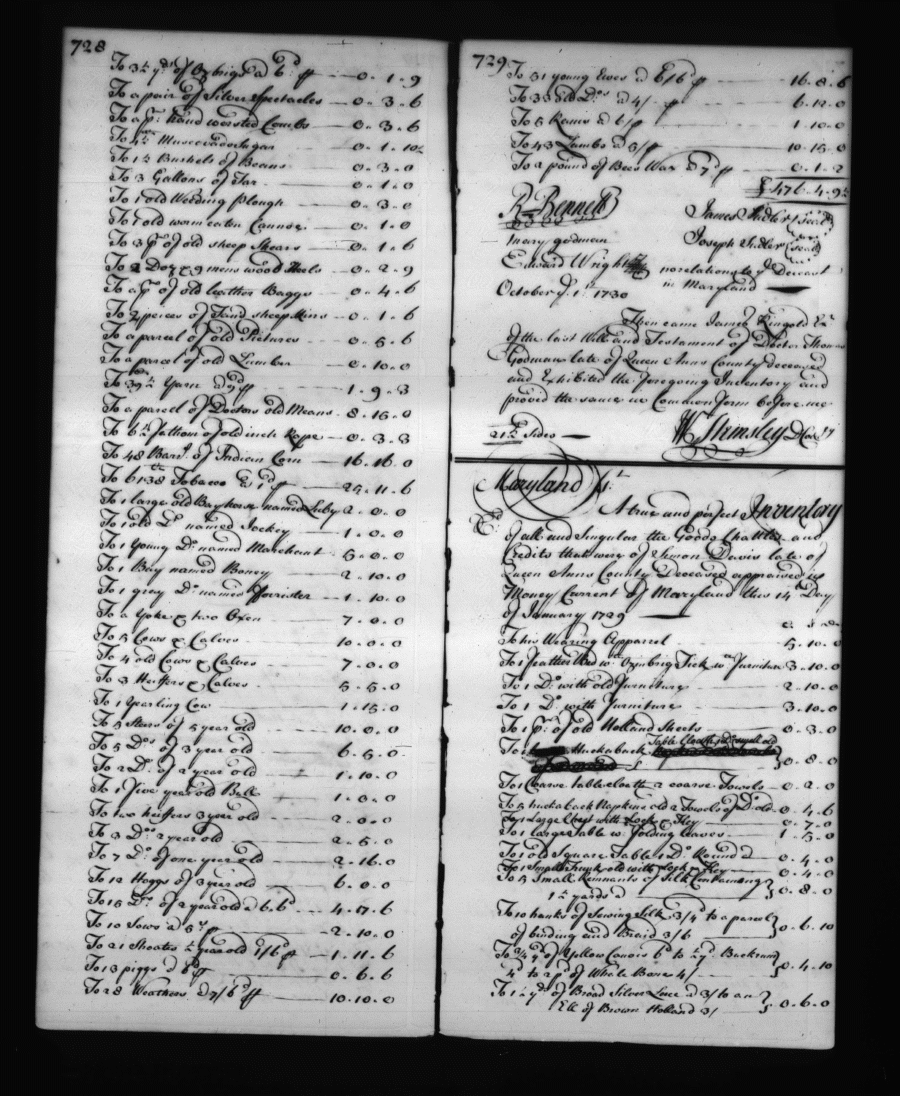 728
To 3½ yds of Ozbrigs a 6d p — 0 .. 1 .. 9
To a pair of Silver Spectacles — 0 .. 3 .. 6
To a pr. hand worsted Combs — 0 .. 3 .. 6
To 4½ Muscovado Sugar — 0 .. 1 .. 10½
To 1½ Bushels of Beans — 0 .. 3 .. 0
To 3 Gallons of Tar — 0 .. 1 .. 0
To 1 old Weeding Plough — 0 .. 3 .. 0
To 1 old worm eaten Cannoe — 0 .. 1 .. 0
To 3 pr of old sheep Shears — 0 .. 1 .. 6
To 2 Doz & 9 mens wood Heels — 0 .. 2 .. 9
To a pr of old leather Baggs — 0 .. 4 .. 6
To 2 peices of Tand sheep skins — 0 .. 1 .. 6
To a parcel of old Pictures — 0 .. 5 .. 6
To a parcel of old Lumber — 0 .. 10 .. 0
To 39 Yarn a p — 1 .. 9 .. 3
To a parcel of Doctors old Means — 8 .. 15 .. 0
To 6½ fathom of old inch Rope — 0 .. 3 .. 3
To 48 Barrl. of Indian Corn — 16 .. 16 .. 0
To 6138 Tobacco a 1d p — 25 .. 11 .. 6
To 1 large old Bay horse named Luby 2 .. 0 .. 0
To 1 old Do named Jockey — 1 .. 0 .. 0
To 1 Young Do named Marchant — 5 .. 0 .. 0
To 1 Bay named Boney — 2 .. 10 .. 0
To 1 grey Do named Forrister — 1 .. 10 .. 0
To a Yoke & two Oxen — 7 .. 0 .. 0
To 5 Cows & Calves — 10 .. 0 .. 0
To 4 old Cows & Calves — 7 .. 0 .. 0
To 3 Heifers & Calves — 5 .. 5 .. 0
To 1 Yearling Cow — 1 .. 15 .. 0
To 5 Stears of 5 year old — 10 .. 0 .. 0
To 5 Dos of 3 year old — 6 .. 5 .. 0
To 2 Do. of 2 year old — 1 .. 10 .. 0
To 1 five year old Bull — 1 .. 0 .. 0
To two heifers 3 year old — 2 .. 0 .. 0
To 3 Dos 2 year old — 2 .. 5 .. 0
To 7 Do. of one year old — 2 .. 16 .. 0
To 12 Hoggs of 3 year old — 6 .. 0 .. 0
To 15 Do. of 2 year old a 6.6d — 4 .. 17 .. 6
To 10 Sows a 5s p — 2 .. 10 .. 0
To 21 Shoats ½ year old 1/6d p — 1 .. 11 .. 6
To 13 piggs a 6d p — 0 .. 6 .. 6
To 28 Weathers a 7/6d p — 10 .. 10 .. 0
729
To 51 young Ewes a p — 16 .. 8 .. 6
To 33 Old Dos a 4/ p — 6 .. 12 .. 0
To 5 Rams a 6/ p — 1 .. 10 .. 0
To 43 Lambs a 5/ p — 10 .. 15 .. 0
To 2 pound of Bees Wax a 7d p — 0 .. 1 .. 2
£ 476 .. 4 .. 9½
R Bennett
James Sudler (seal)
Mary godman
Joseph Sudler (seal)
Edward Wright
no relations to ye Deceast
in Maryland —
October ye 1st 1730
Then came James Ringold Exr
Of the last Will and Testament of Doctor Thomas
Godman late of Queen Anns County deceased
and Exhibited the foregoing Inventory and
proved the same in Common form before me
21½ Sides —
Maryland ss
A true and perfect Inventory
of all and Singular the Goods Chattles and
Credits that were of Simon Davis late of
Queen Anns County Deceased appraised in
Money Current of Maryland this 14th Day
of January 1729
To his Wearing Apparrel — 5 .. 10 .. 0
To 1 feather Bed wth Ozinbrig Tick wth furniture 3 .. 10 .. 0
To 1 Do with old furniture — 2 .. 10 .. 0
To 1 Do. with furniture — 3 .. 10 .. 0
To 1 pr. of old Holland Sheets — 0 .. 3 .. 0
To 1 Huckaback Table Cloath old } 0 .. 8 .. 0
To 1 Coarse table cloath 2 coarse Towels — 0 .. 2 .. 0
To 5 huckaback Napkins old 2 Towels of Do. old — 0 .. 4 .. 6
To 1 Large Chest with Lock & Key — 0 .. 7 .. 0
To 1 large Table wth folding leaves — 1 .. 5 .. 0
To 1 old Square Table 1 Do. Round — 0 .. 4 .. 0
To 1 Small Trunk old with Lock & Key — 0 .. 4 .. 0
To 5 Small Remnants of Silk Containing }
1½ yards a — } 0 .. 8 .. 0
To 10 hanks of Sewing Silk 3/4 to a parcel }
of binding and Braid 3/6 — } 0 .. 6 .. 10
To ¾ yd of Yellow Canvis 6d to ½ yd. Buckrum }
4d to 2 pd of Whale Bone 4/ — } 0 .. 4 .. 10
To 1½ yd. of Broad Silver Lace a 3/ to an }
Ell of Brown Holland 3/ — } 0 .. 6 .. 0